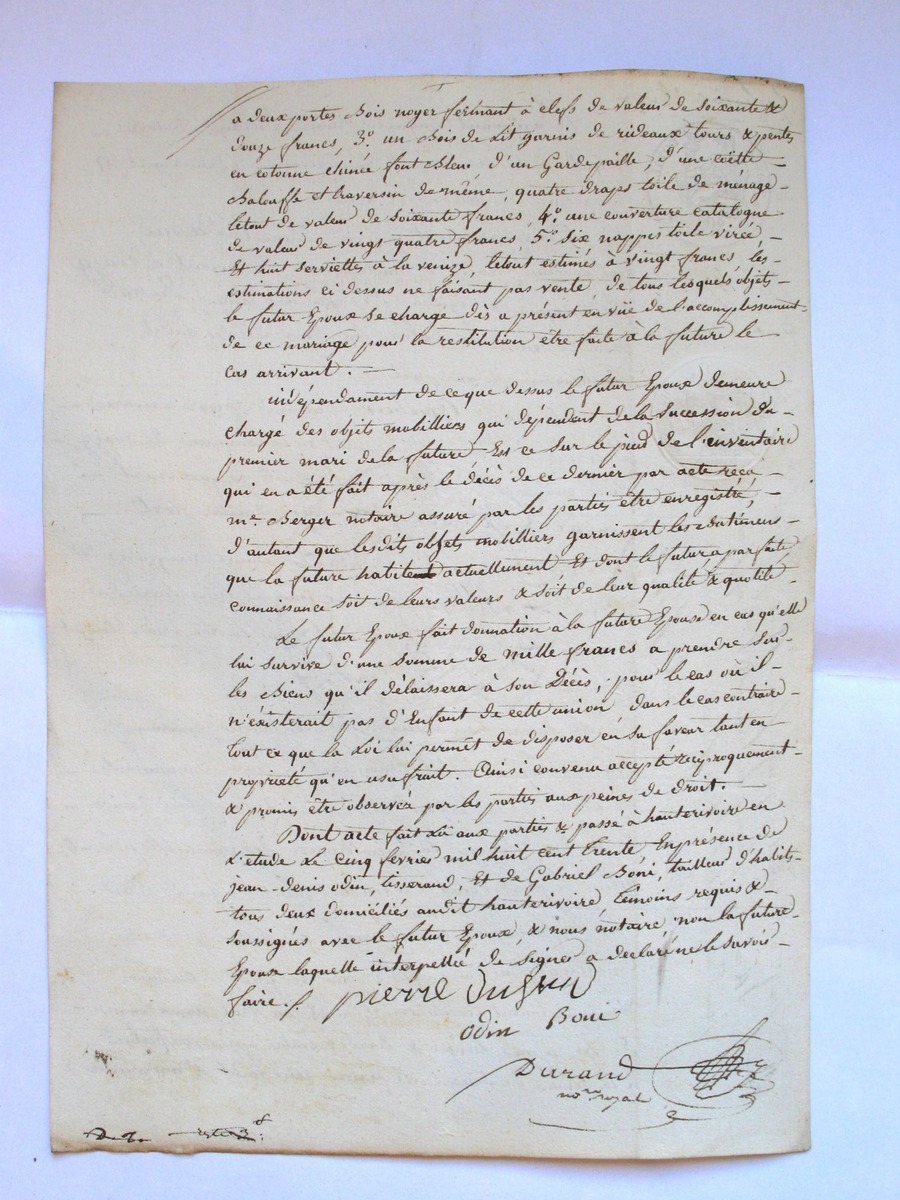 a deux portes Bois noyer fermant à clefs de valeur de soixante &
douze francs, 3.º un Bois de Lit garnis de rideaux tours & pentes
en cotonne chinée font Bleu, d'un Gardepaille, d'une coëtte –
Balouffe et traversin de même, quatre draps toile de ménage –
letout de valeur de soixante francs, 4.º une couverture catalogne
de valeur de vingt quatre francs, 5.º six nappes toile virée, –
Et huit serviettes à la venize, letout estimés à vingt francs, les –
estimations ci dessus ne faisant pas vente, de tous lesquels objets –
le futur Epoux se charge dès a présent en vüe de l'accomplissement –
de ce mariage pour la restitution être faite à la future le
cas arrivant. –
indépendament de ceque dessus le futur Epoux demeure
chargé des objets mobilliers qui dépendent dela succession du –
premier mari dela future Et ce sur le pied de l'inventaire
qui en a été fait après le décès de ce dernier par acte reçu –
m.e Berger notaire assuré par les parties être enregistré, –
d'autant que lesdits objets mobilliers garnissent les Batimens –
que la future habite actuellement Et dont le futur a parfaite
connaissance soit de leurs valeurs & soit de leur qualité & quotité –
Le futur Epoux fait donnation à la future Epouse en cas qu'elle
lui survive d'une somme de mille francs a prendre sur –
les Biens qu'il délaissera à son Décès, pour le cas où il –
n'éxisterait pas d'Enfant de cette union, dans le cas contraire –
tout ce que la Loi lui permet de disposer en sa faveur tant en
propriété qu'en usufruit. Ainsi convenu accepté réciproquement –
& promis être observér par les parties aux peines de droit. –
Dont acte fait Lu aux parties & passé à hauterivoire en
L'étude Le cinq fevrier mil huit cent trente En présence de
jean-denis odin, tisserand, Et de Gabriel Boni, tailleur d'habits –
tous deux domiciliés audit hauterivoire, témoins requis & –
soussignés avec le futur Epoux & nous notaire, non la future –
Epouse laquelle interpellée de signer a declaré ne le savoir –
faire. /. pierre
odin Boni
Durand
no.re royal
reste 3f